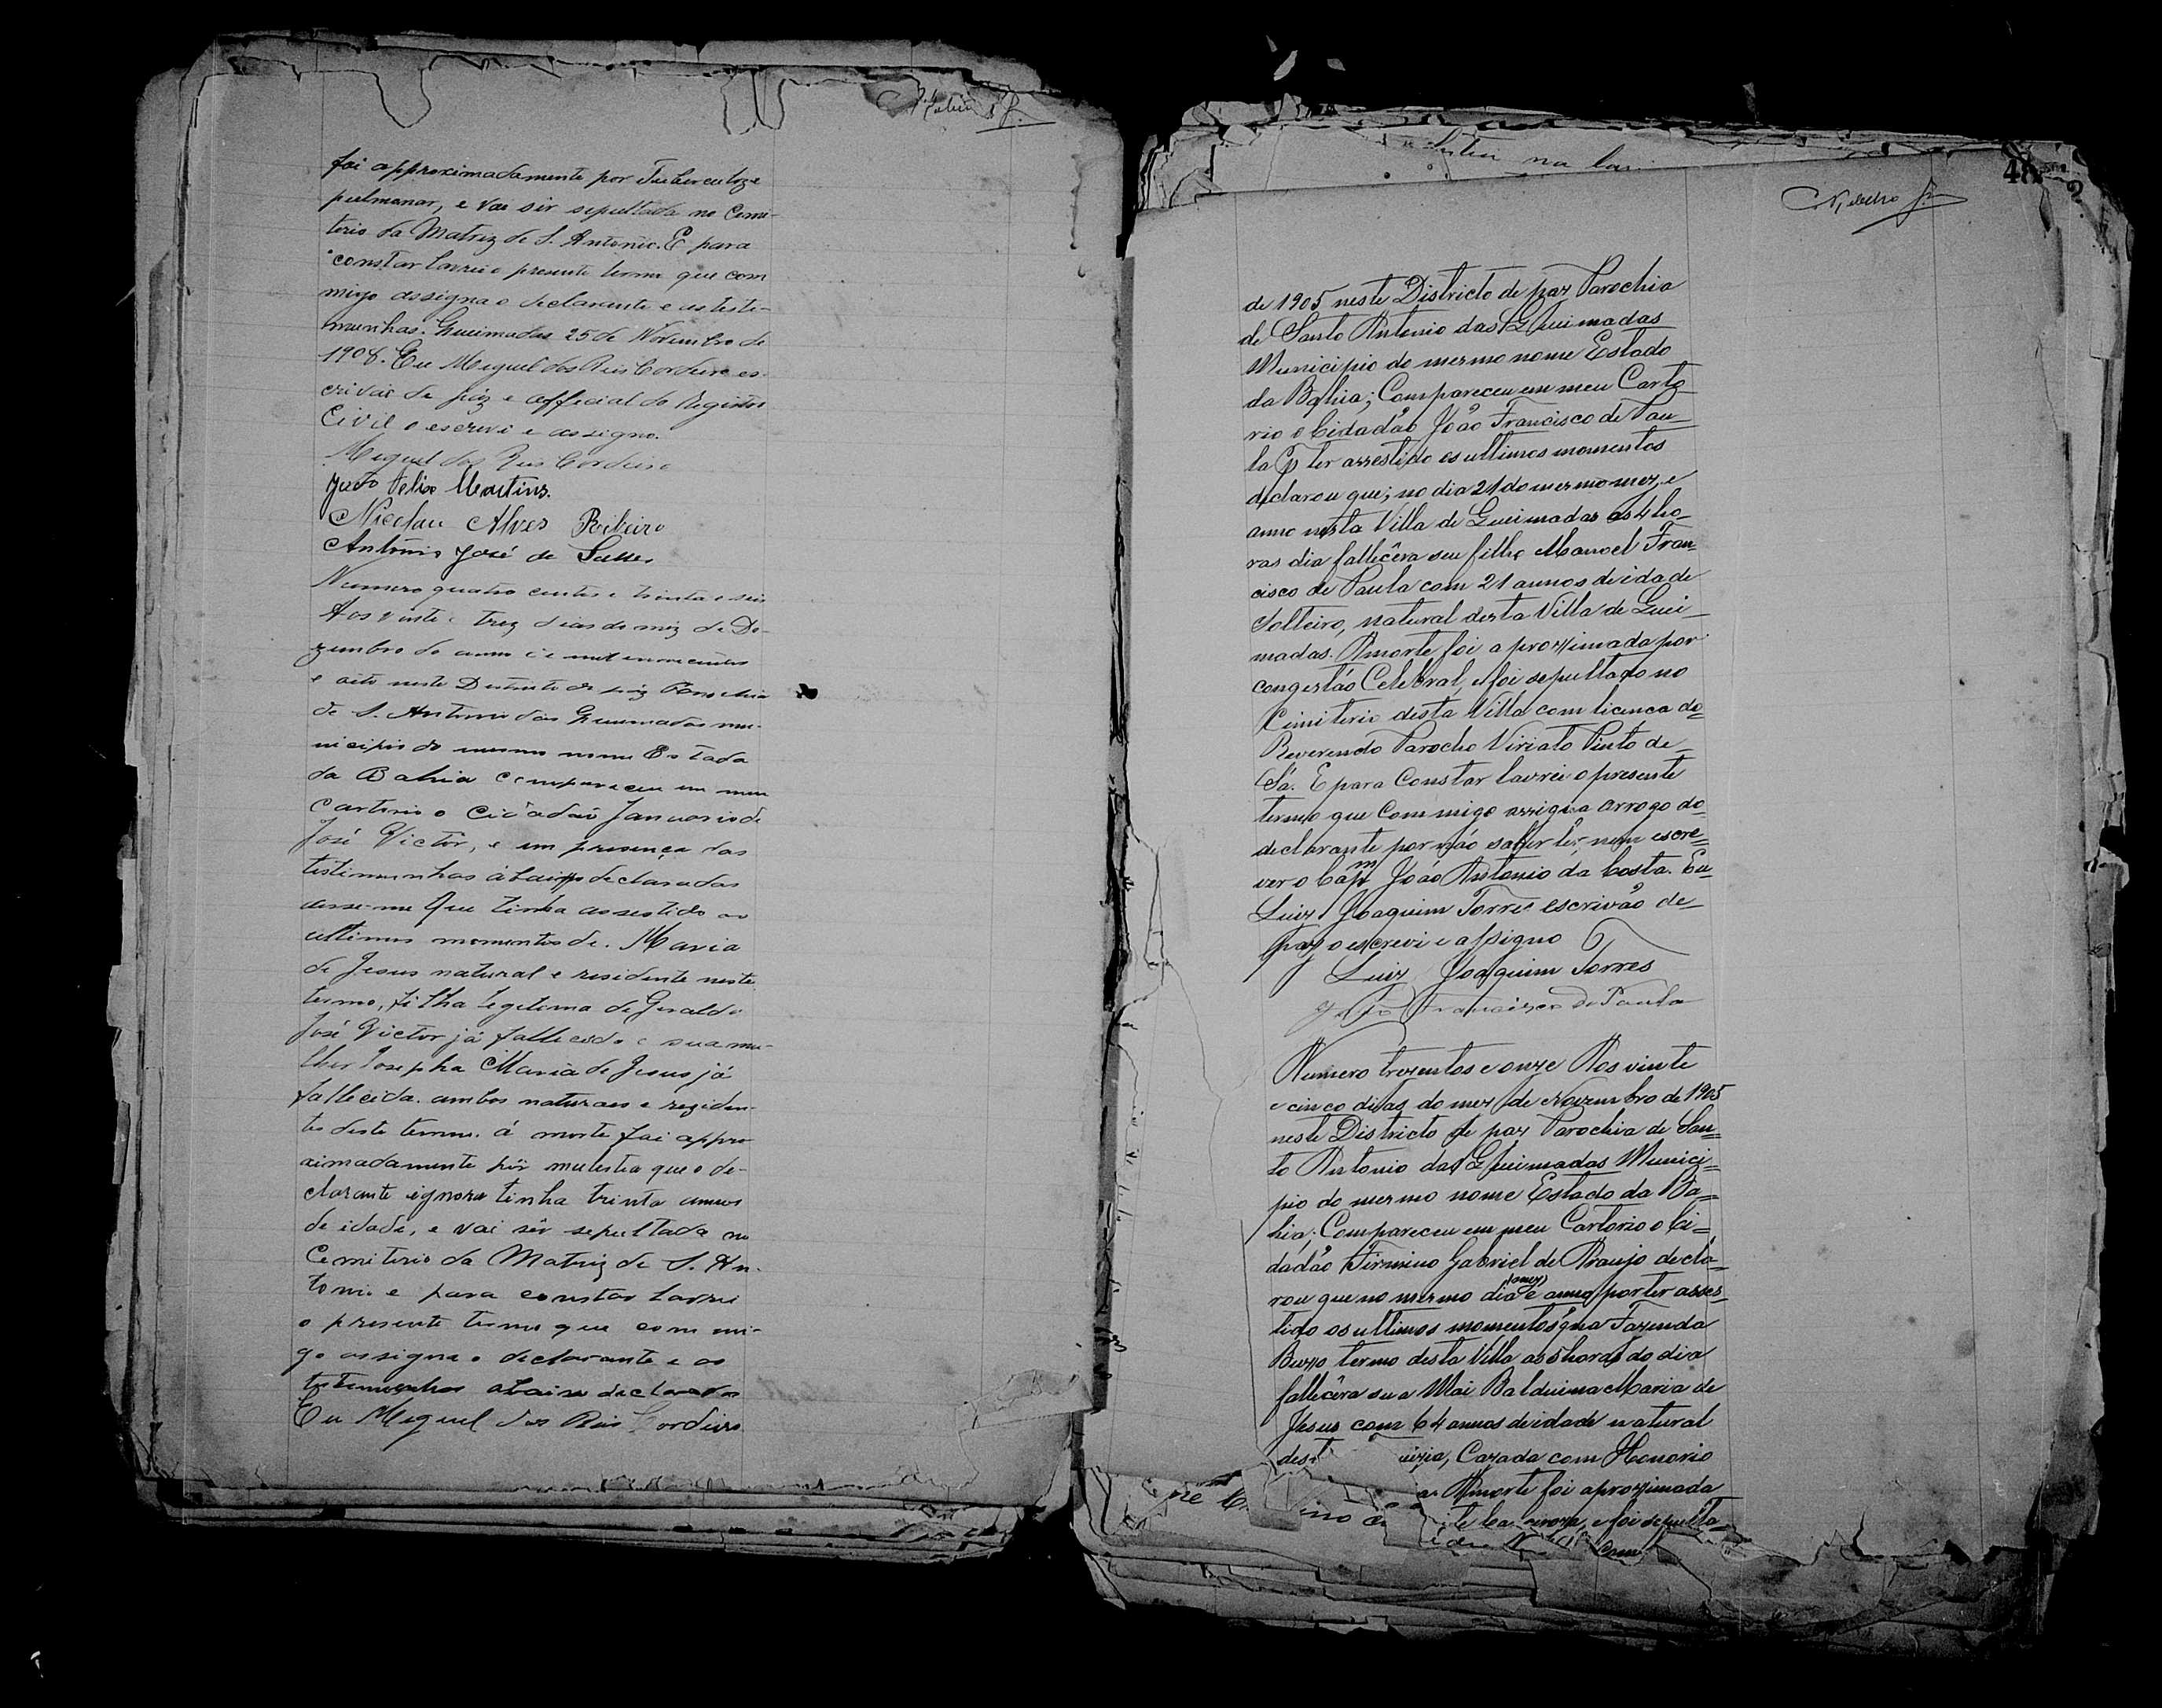 foi approximadamente por Tuberculoze
pulmonar, e vai sêr sepultada no Cemi-
terio da Matriz de S. Antonio. E para
constar lavrei o presente termo que com
migo assigna o declarante e as teste-
munhas. Queimadas 25 de Novembro de
1908. Eu Miguel dos Reis Cordeiro es-
crivão de paz e official do Registro
Civil o escrevi e assigno.
Miguel dos Reis Cordeiro
Felix Martins.
Nicolau Alves Ribeiro
Antônio José de Salles
Numero quatro centos e trinta e seis
Aos vinte e trez dias do mez de De-
zembro do anno de mil enovecentos
e oito neste Destricto de paz Parochia
de S. Antonio das Queimadas mu-
nicipio do mesmo nome Estado
da Bahia compareceu em meu
cartorio o Cidadão Januario de
José Victôr, e em presença das
testimunhas abaixo declaradas
disse-me Que tinha assestido os
ultimos momentos de. Maria
de Jesus natural e residente neste
termo, filha legitema de Geraldo
José Victor já fallecido e sua mu-
lher Josepha Maria de Jesus já
fallecida. ambos naturaes e residen-
tes deste termo. á morte foi appro
ximadamente pôr mulestia que o de-
clarante ignora tinha trinta annos
de idade, e vai sêr sepultada no
Cemiterio da Matriz de S. An-
tonio e para constar lavrei
o presente termo que com mi-
go assigna o declarante e as
testemunhas abaixo declaradas
Eu Miguel dos Reis Cordeiro
48
de 1905 neste Districto de paz Parochia
de Santo Antonio das Queimadas
Municipio do mesmo nome Estado
da Bahia; Compareceu em meu Carto
rio o Cidadão João Francisco de Pau-
la ter assestido os ultimos momentos
declarou que; no dia 21 do mesmo mez, e
anno nesta Villa de Queimadas as 4 ho-
ras dia fallecêra seu filho Manoel Fran
cisco de Paula com 21 annos de idade
Solteiro, natural desta Villa de Quei-
madas. A morte foi aproximada por
congestão Celebral, e foi sepultado no
Cimiterio desta Villa com licenca do-
Reverendo Parocho Viriato Pinto de-
Sá. E para Constar lavrei o presente
termo que Commigo assigna arrogo do-
declarante por não saber lêr, nem escre-
ver o Capm João Antonio da Costa. Eu-
Luiz Joaquim Torres escrivão de-
paz o escrevi e assigno
Luiz Joaquim Torres
João Francisco de Paula
Numero trezentos e onze Aos vinte
e cinco dias do mez de Novembro de 1905
neste Districto de paz Parochia de San-
to Antonio das Queimadas Munici-
pio do mesmo nome Estado da Ba-
hia; Compareceu em meu Cartorio o Ci-
dadão Firmino Gabriel de Araujo decla-
rou que no mesmo dia e anno por ter asses-
tido os ultimos momentos na Fazenda
termo desta Villa as 5 horas do dia
fallecêra sua Mai Balduina Maria de
Jesus com 64 annos de idade natural
Cazada com Honorio
A morte foi aproximada
e foi sepulta-
com